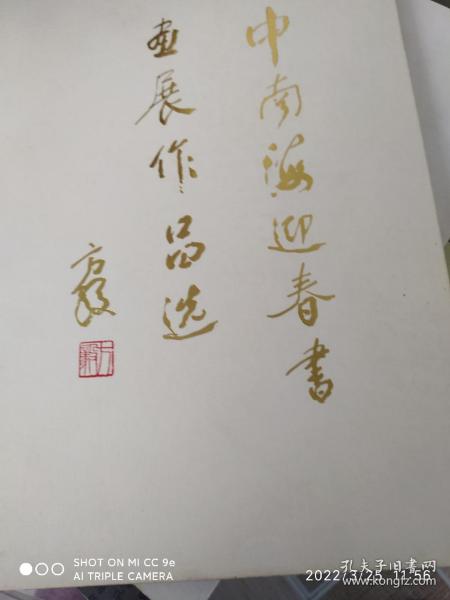 中南海迎春书
画展作品选
方毅
方毅
SHOT ON MI CC 9e
AI TRIPLE CAMERA
2022/3/25 11:56
孔夫子旧书网
kongfz.com